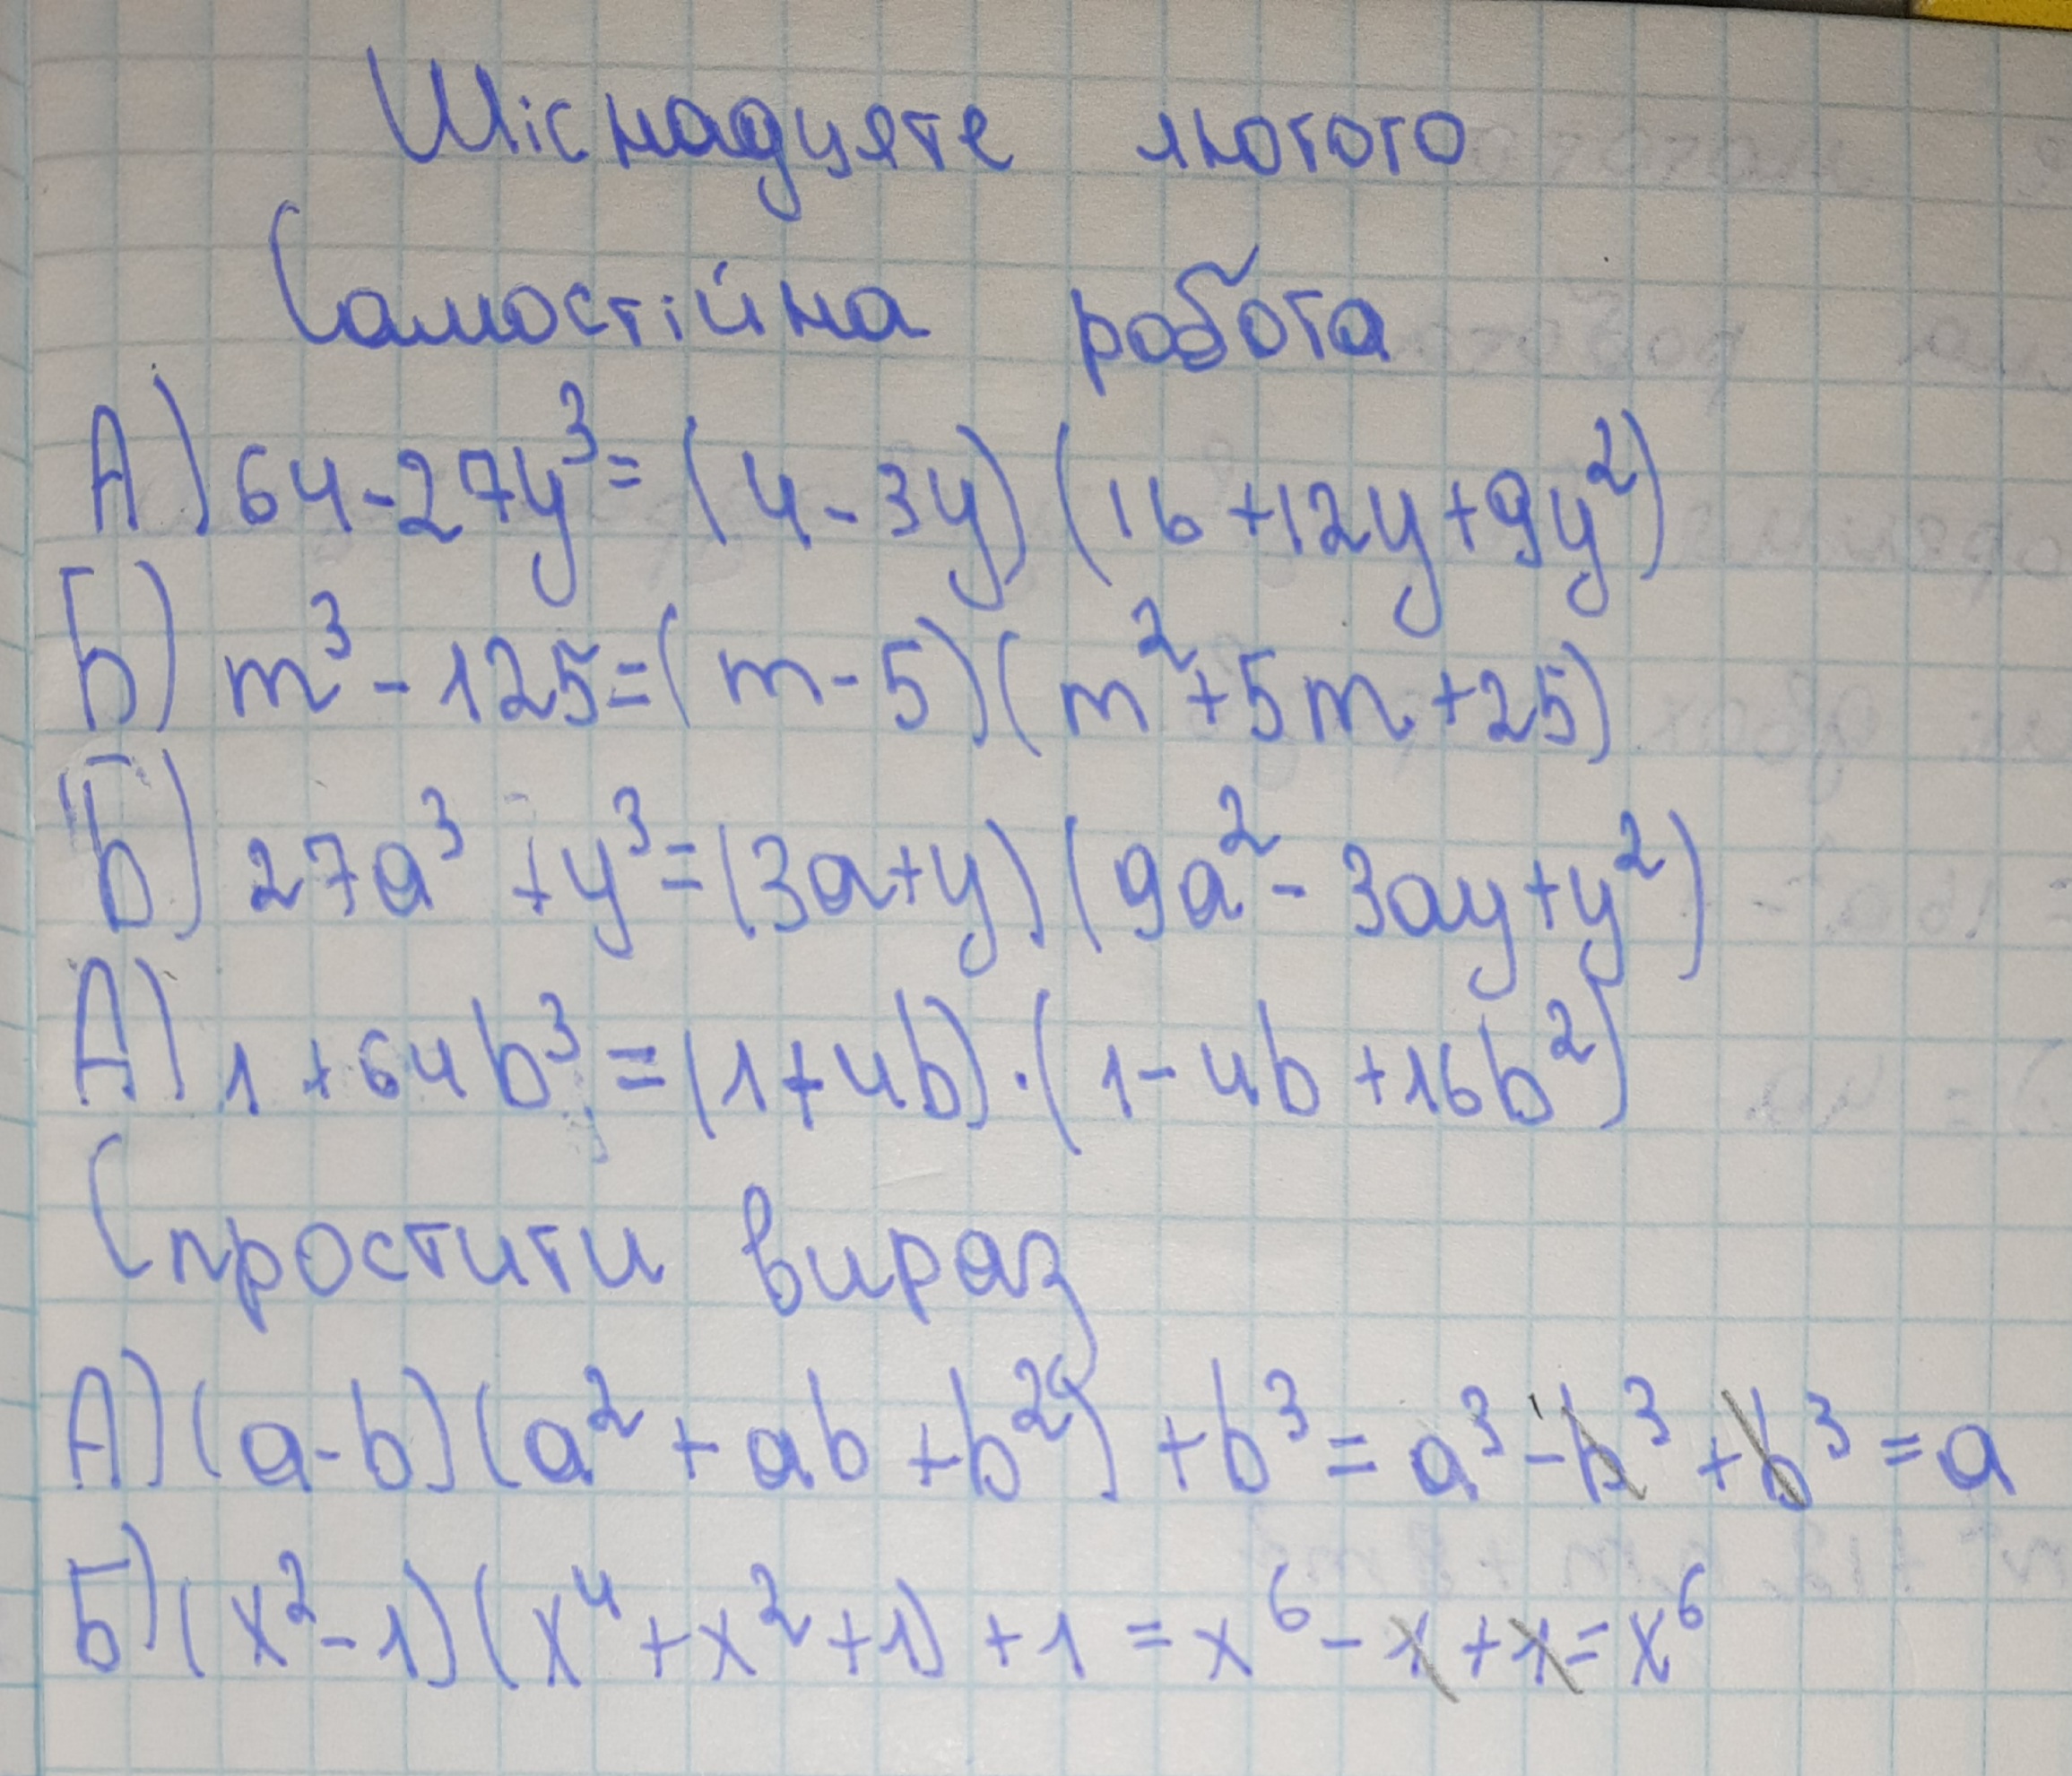 Шіснадцяте лютого
Самостійна робота
А) 64-27y³= (4-3y) (16+12y+9y²)
Б) m³-125=(m-5)(m²+5m+25)
Б) 27a³+y³=(3a+y)(9a²-3ay+y²)
А) 1+64b³=(1+4b)·(1-4b+16b²)
Спростити вираз
А) (a-b)(a²+ab+b²)+b³=a³-b³+b³=a
Б) (x²-1)(x⁴+x²+1)+1=x⁶-1+1=x⁶